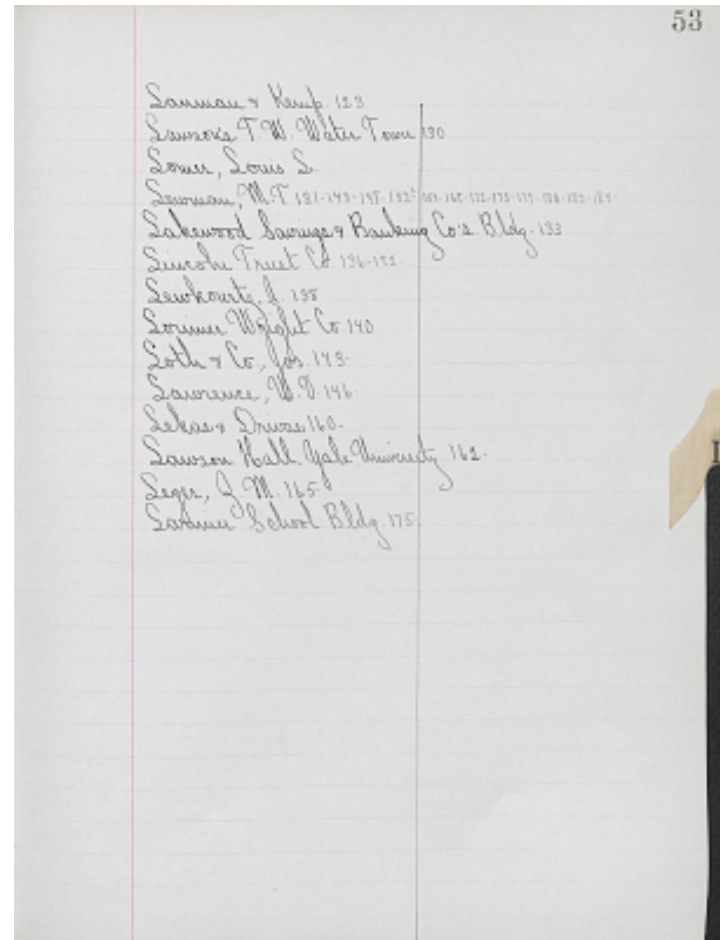 53
Lanman & Kemp. 123
Lawson's T. W. Water Tower 130
Lomer, Louis L.
M.T. 131-143-148-152
Lakewood Savings & Banking Co's. Bldg. 133
Lincoln Trust Co. 136-152-
J. 138
Lorimer Wright Co. 140
Loth & Co., Jos. 143-
Lawrence, W. V. 146
Lekas & Drivas 160-
Lawson Hall. Yale University 162-
Leger, J. M. 165-
Larimer School Bldg. 175-